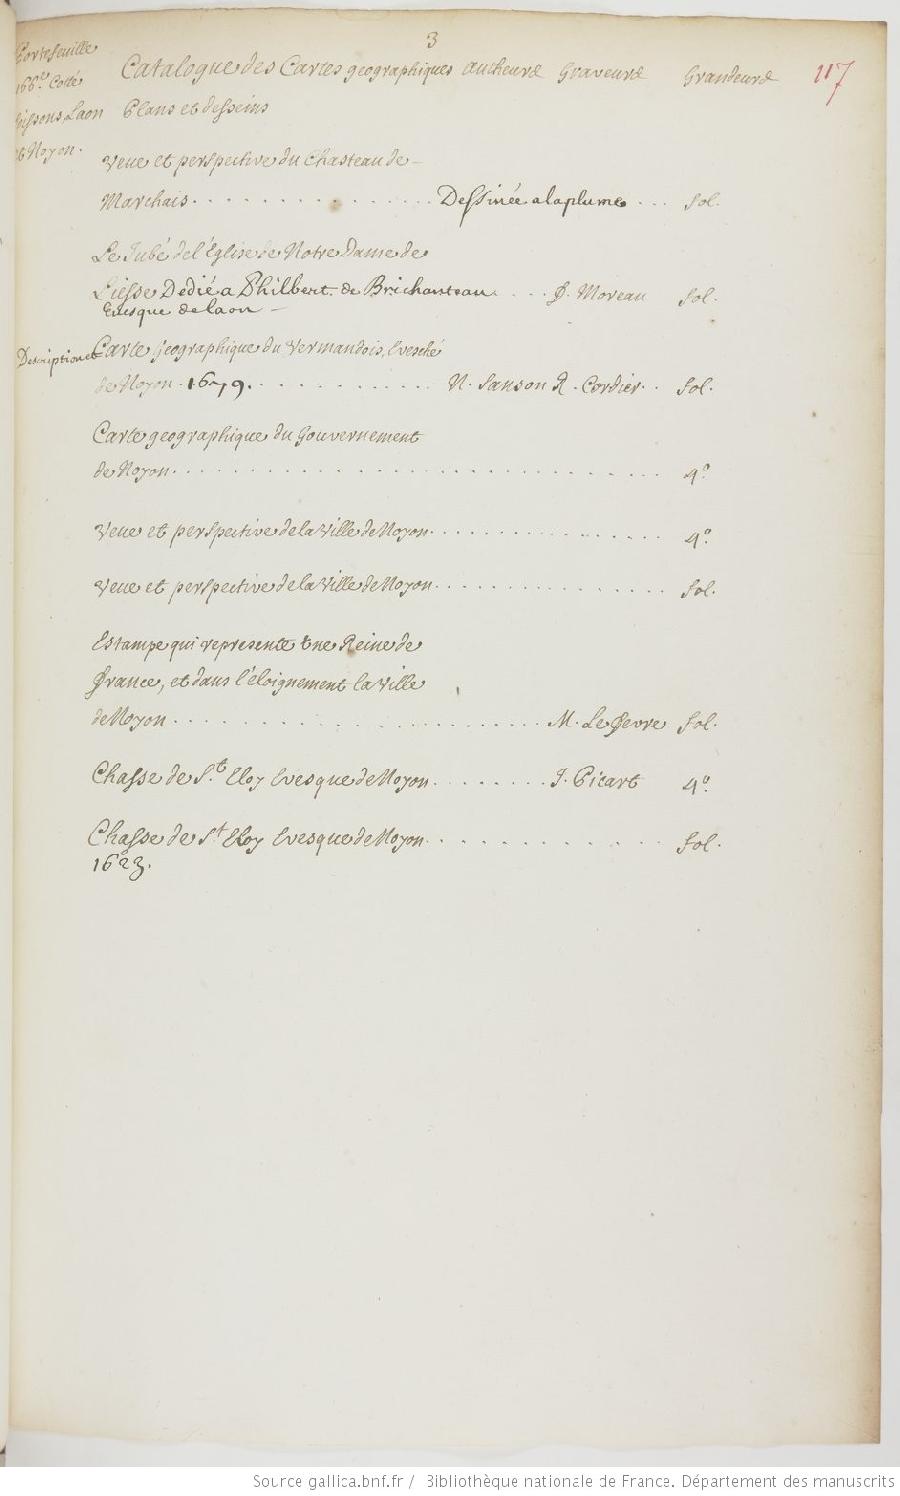 3
Portefeuille
166.e Cotté
Soissons, Laon
et Noyon.
Catalogue des Cartes geographiques Autheurs Graveurs Grandeurs 117
Plans et desseins
Veue et perspective du Chasteau de
Marchais. Dessinée a la plume. fol.
Le Jubé de l'Église de Notre Dame de
Liesse Dedié a Philbert. de Brichanteau F. Moreau fol.
Evesque de Laon
Description
Carte geographique du Vermandois, Evesché
de Noyon. 1679. N. Sanson R. Cordier. fol.
Carte geographique du Gouvernement
de Noyon. 4.o
Veue et perspective de la Ville de Noyon. 4.o
Veue et perspective de la Ville de Noyon. fol.
Estampe qui represente Une Reine de
France, et dans l'éloignement la Ville
de Noyon. M. Le Fevre fol.
Chasse de S.t Eloy Evesque de Noyon. J. Picart 4.o
Chasse de S.t Eloy Evesque de Noyon. fol.
1623.
Source gallica.bnf.fr / Bibliothèque nationale de France. Département des manuscrits